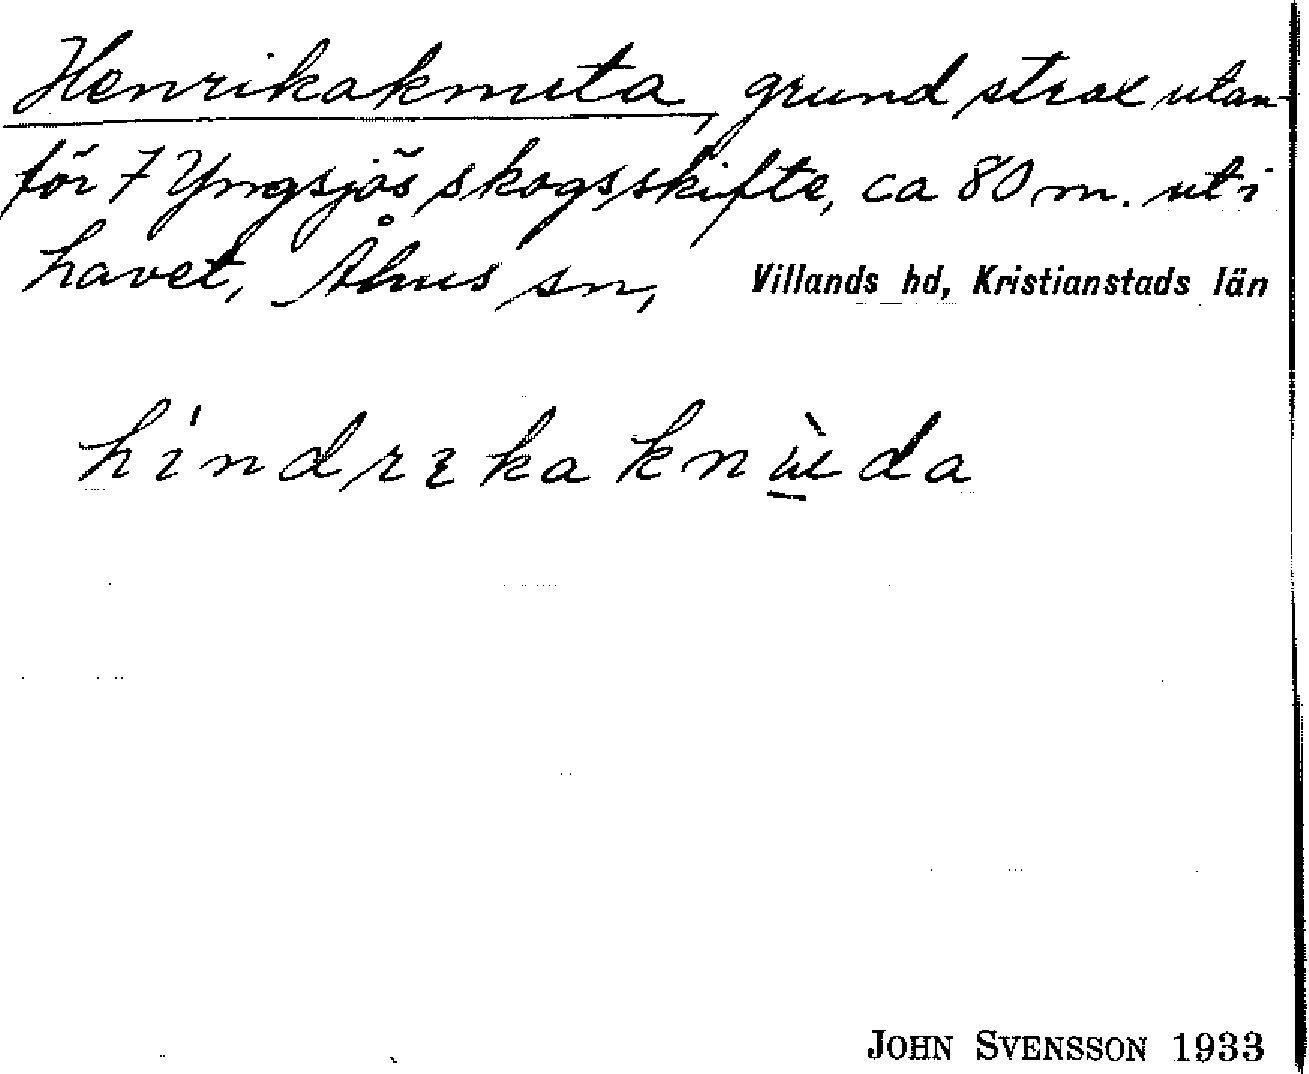 Henrikaknuta, grund strax utan-
för 7 Yngsjös skogsskifte, ca 80 m. ut i
havet, Åhus sn, Villands hd, Kristianstads län
hindrɩkaknùda
JOHN SVENSSON 1933